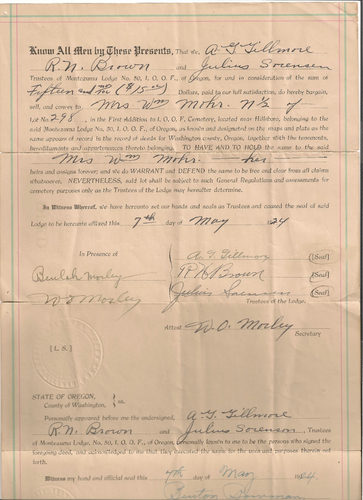 Know All Men by These Presents, That we, A G Tillmore
R. N. Brown and Julius Sorensen
Trustees of Montezuma Lodge No. 50, I. O. O. F., of Oregon, for and in consideration of the sum of
Fifteen and no ($15.00) Dollars, paid to our full satisfaction, do hereby bargain,
sell, and convey to Mrs Wm Mohr. N½ of
Lot No. 298, in the First Addition to I. O. O. F. Cemetery, located near Hillsboro, belonging to the
said Montezuma Lodge No. 50, I. O. O. F., of Oregon, as known and designated on the maps and plats as the
same appears of record in the record of deeds for Washington county, Oregon, together with the tenements,
hereditaments and appurtenances thereto belonging, TO HAVE AND TO HOLD the same to the said
Mrs Wm Mohr. her
heirs and assigns forever; and we do WARRANT and DEFEND the same to be free and clear from all claims
whatsoever. NEVERTHELESS, said lot shall be subject to such General Regulations and assessments for
cemetery purposes only as the Trustees of the Lodge may hereafter determine.
In Witness Whereof, We have hereunto set our hands and seals as Trustees and caused the seal of said
Lodge to be hereunto affixed this 7th day of May 1924
In Presence of A. G. Tillmore (Seal)
Beulah Mosley R N Brown (Seal)
W O Mosley Julius Sorensen (Seal)
Trustees of the Lodge.
Attest W. O. Mosley
Secretary
[L. S.]
STATE OF OREGON,
County of Washington, } ss.
Personally appeared before me the undersigned, A. G. Tillmore
R. N. Brown and Julius Sorenson, Trustees
of Montezuma Lodge, No. 50, I. O. O. F., of Oregon, personally known to me to be the persons who signed the
foregoing deed, and acknowledged to me that they executed the same for the uses and purposes therein set
forth.
Witness my hand and official seal this 7th day of May 1924
Benton Bowman